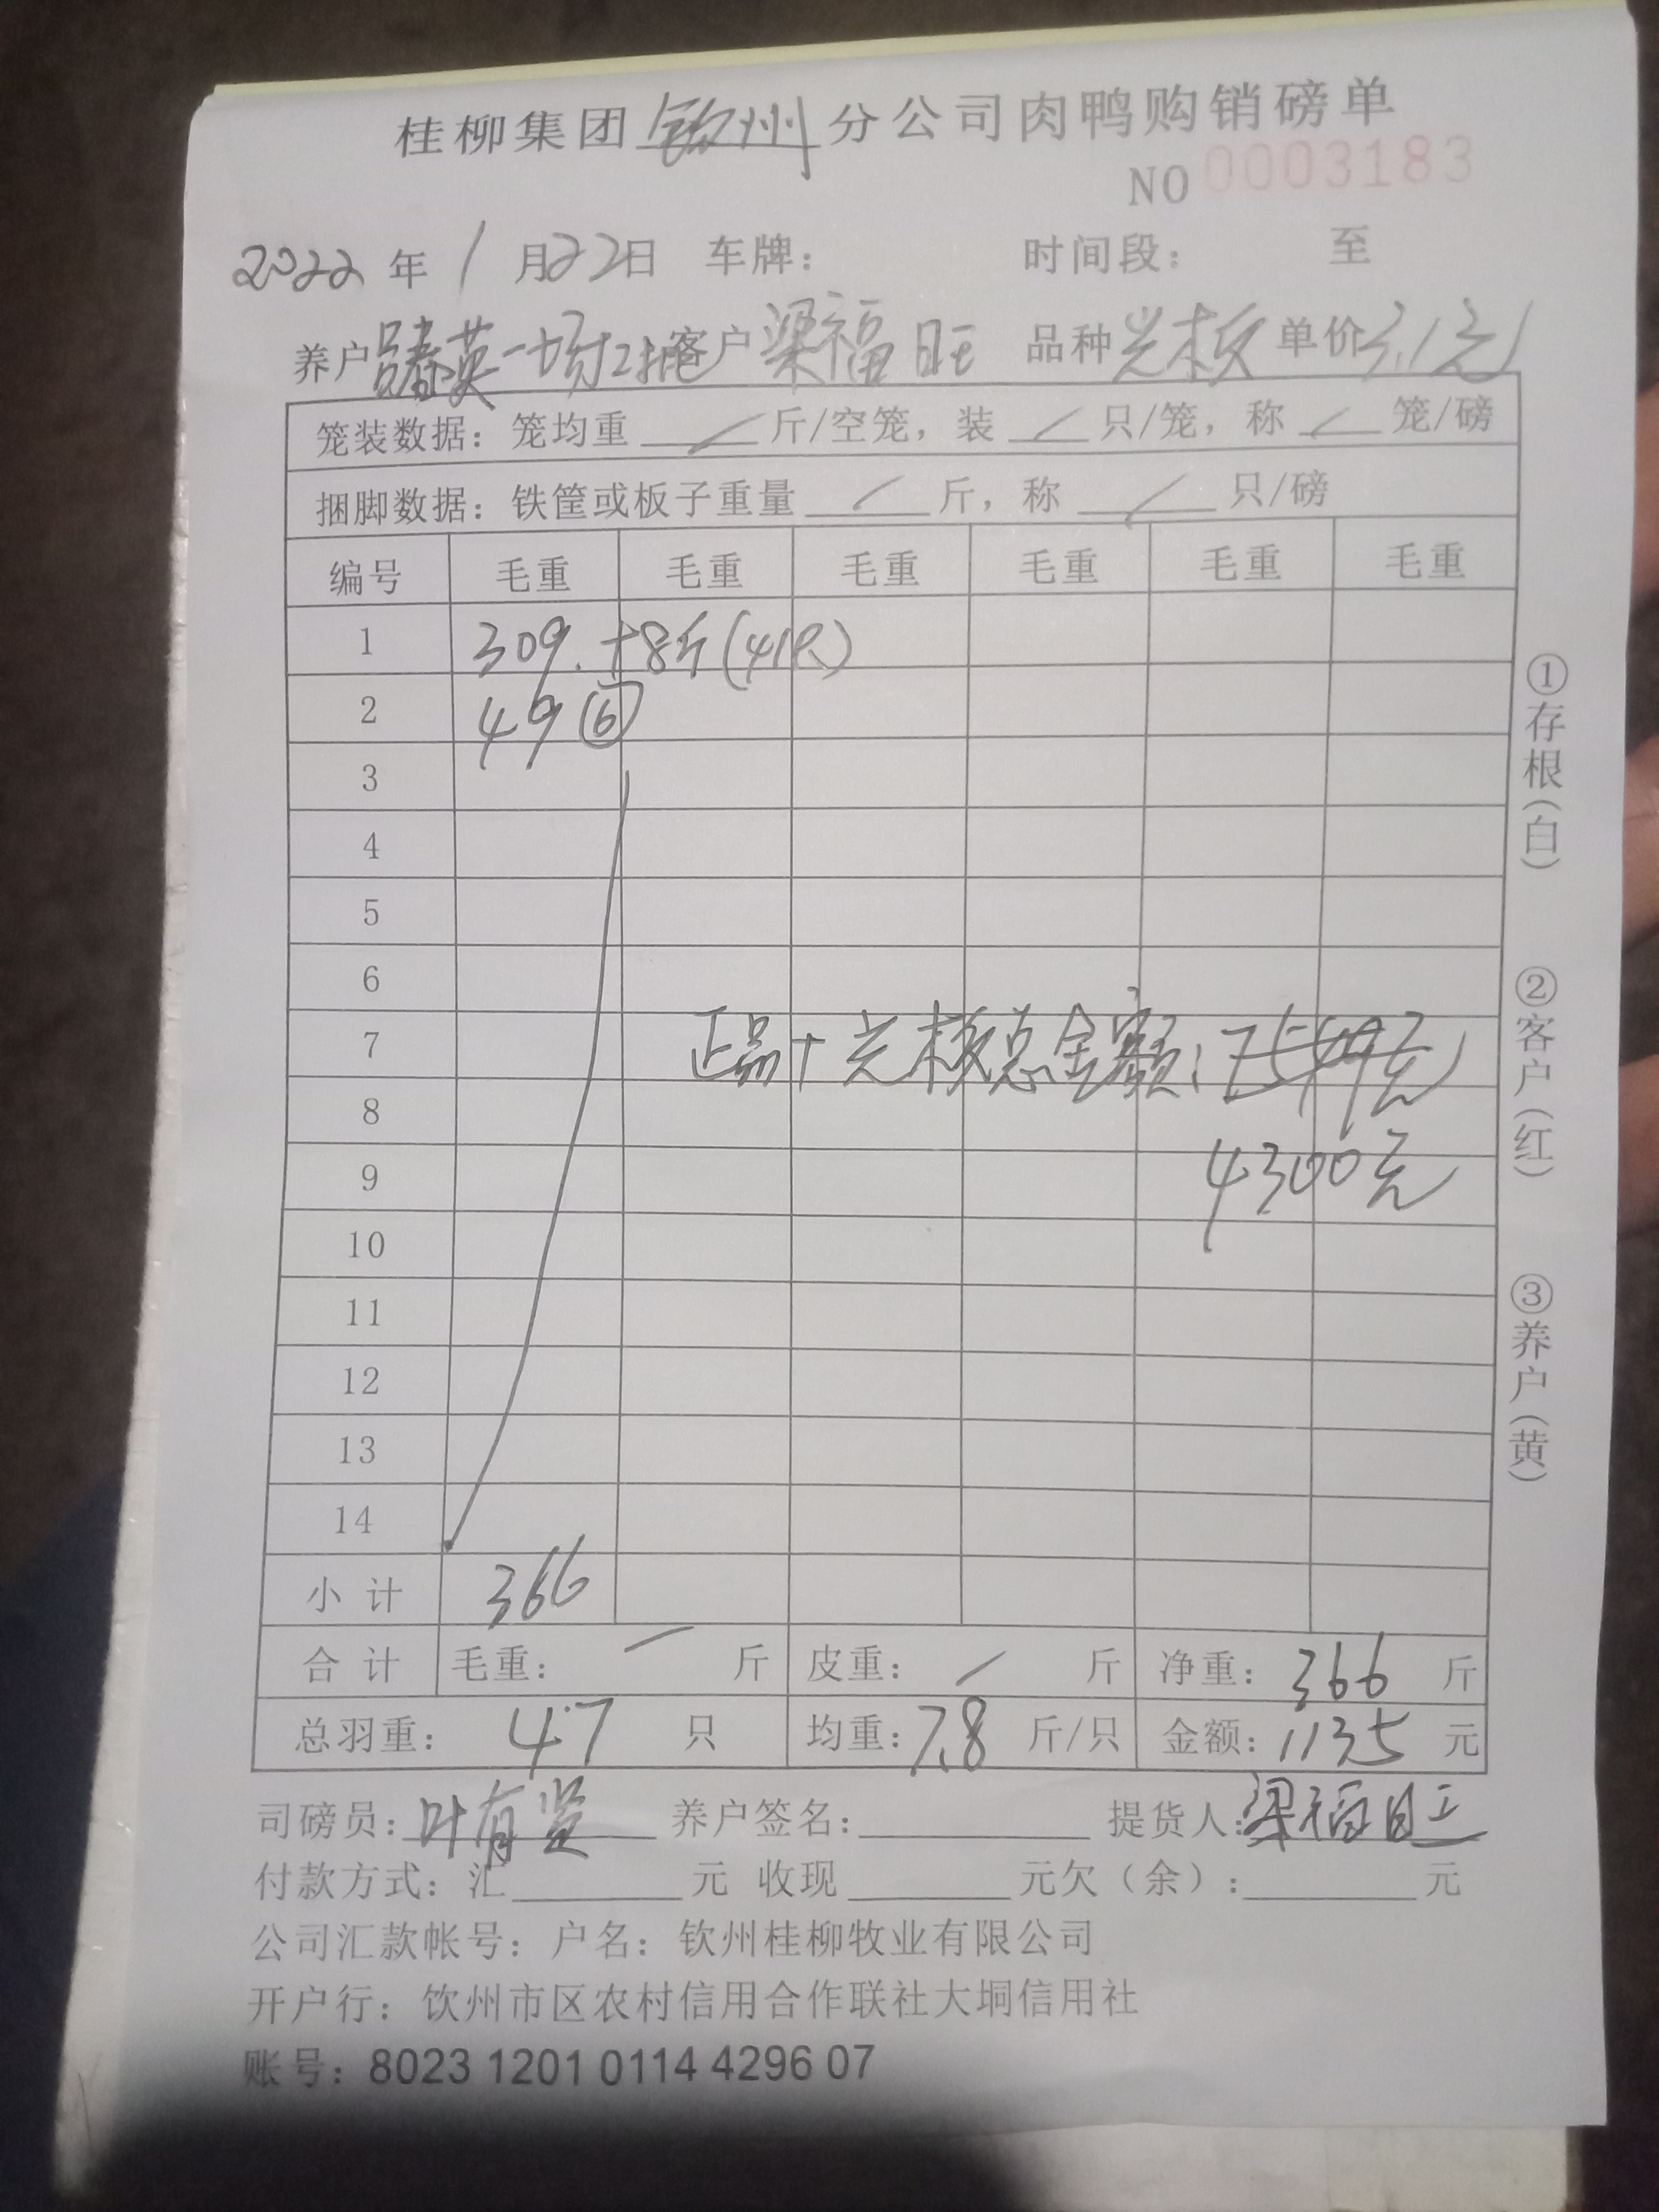 桂柳集团钦州分公司肉鸭购销磅单
NO 0003183
2022年1月22日 车牌: 时间段: 至
养户 吕春英一场2批 客户 梁福旺 品种 单价 3.1元
笼装数据: 笼均重 / 斤/空笼, 装 / 只/笼, 称 / 笼/磅
捆脚数据: 铁筐或板子重量 / 斤, 称 / 只/磅
编号 毛重 毛重 毛重 毛重 毛重 毛重
1 309.+8斤(41只)
2 49⑥
3
4
5
6
7 正品+ 总金额:
8
9 4300元
10
11
12
13
14
小计 366
合计 毛重: 斤 皮重: / 斤 净重: 366 斤
总羽重: 47 只 均重: 7.8 斤/只 金额: 1135 元
司磅员: 叶有 养户签名: 提货人: 梁福旺
付款方式: 汇 元 收现 元欠(余): 元
公司汇款帐号: 户名: 钦州桂柳牧业有限公司
开户行: 钦州市区农村信用合作联社大垌信用社
账号: 8023 1201 0114 4296 07
①存根(白)
②客户(红)
③养户(黄)